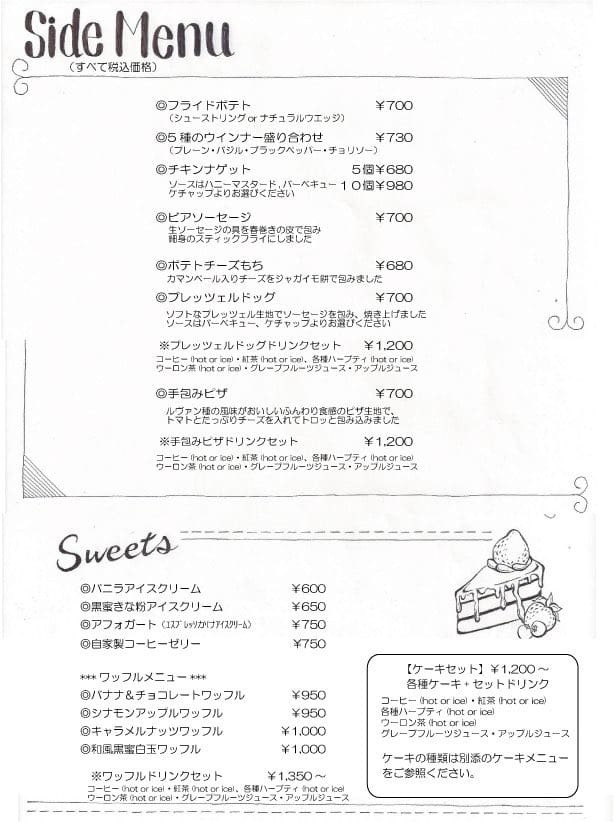 Side Menu
（すべて税込価格）
◎フライドポテト ￥700
（シューストリング or ナチュラルウエッジ）
◎5種のウインナー盛り合わせ ￥730
（プレーン・バジル・ブラックペッパー・チョリソー）
◎チキンナゲット 5個￥680
ソースはハニーマスタード，バーベキュー 10個￥980
ケチャップよりお選びください
◎ビアソーセージ ￥700
生ソーセージの具を春巻きの皮で包み
細身のスティックフライにしました
◎ポテトチーズもち ￥680
カマンベール入りチーズをジャガイモ餅で包みました
◎プレッツェルドッグ ￥700
ソフトなプレッツェル生地でソーセージを包み、焼き上げました
ソースはバーベキュー、ケチャップよりお選びください
※プレッツェルドッグドリンクセット ￥1,200
コーヒー (hot or ice)・紅茶 (hot or ice)、各種ハーブティ (hot or ice)
ウーロン茶 (hot or ice)・グレープフルーツジュース・アップルジュース
◎手包みピザ ￥700
ルヴァン種の風味がおいしいふんわり食感のピザ生地で、
トマトとたっぷりチーズを入れてトロッと包み込みました
※手包みピザドリンクセット ￥1,200
コーヒー (hot or ice)・紅茶 (hot or ice)、各種ハーブティ (hot or ice)
ウーロン茶 (hot or ice)・グレープフルーツジュース・アップルジュース
Sweets
◎バニラアイスクリーム ￥600
◎黒蜜きな粉アイスクリーム ￥650
◎アフォガート（ｴｽﾌﾟﾚｯｿがけｱｲｽｸﾘｰﾑ） ￥750
◎自家製コーヒーゼリー ￥750
*** ワッフルメニュー ***
◎バナナ＆チョコレートワッフル ￥950
◎シナモンアップルワッフル ￥950
◎キャラメルナッツワッフル ￥1,000
◎和風黒蜜白玉ワッフル ￥1,000
※ワッフルドリンクセット ￥1,350～
コーヒー (hot or ice)・紅茶 (hot or ice)、各種ハーブティ (hot or ice)
ウーロン茶 (hot or ice)・グレープフルーツジュース・アップルジュース
【ケーキセット】￥1,200～
各種ケーキ + セットドリンク
コーヒー (hot or ice)・紅茶 (hot or ice)
各種ハーブティ (hot or ice)
ウーロン茶 (hot or ice)
グレープフルーツジュース・アップルジュース
ケーキの種類は別添のケーキメニュー
をご参照ください。